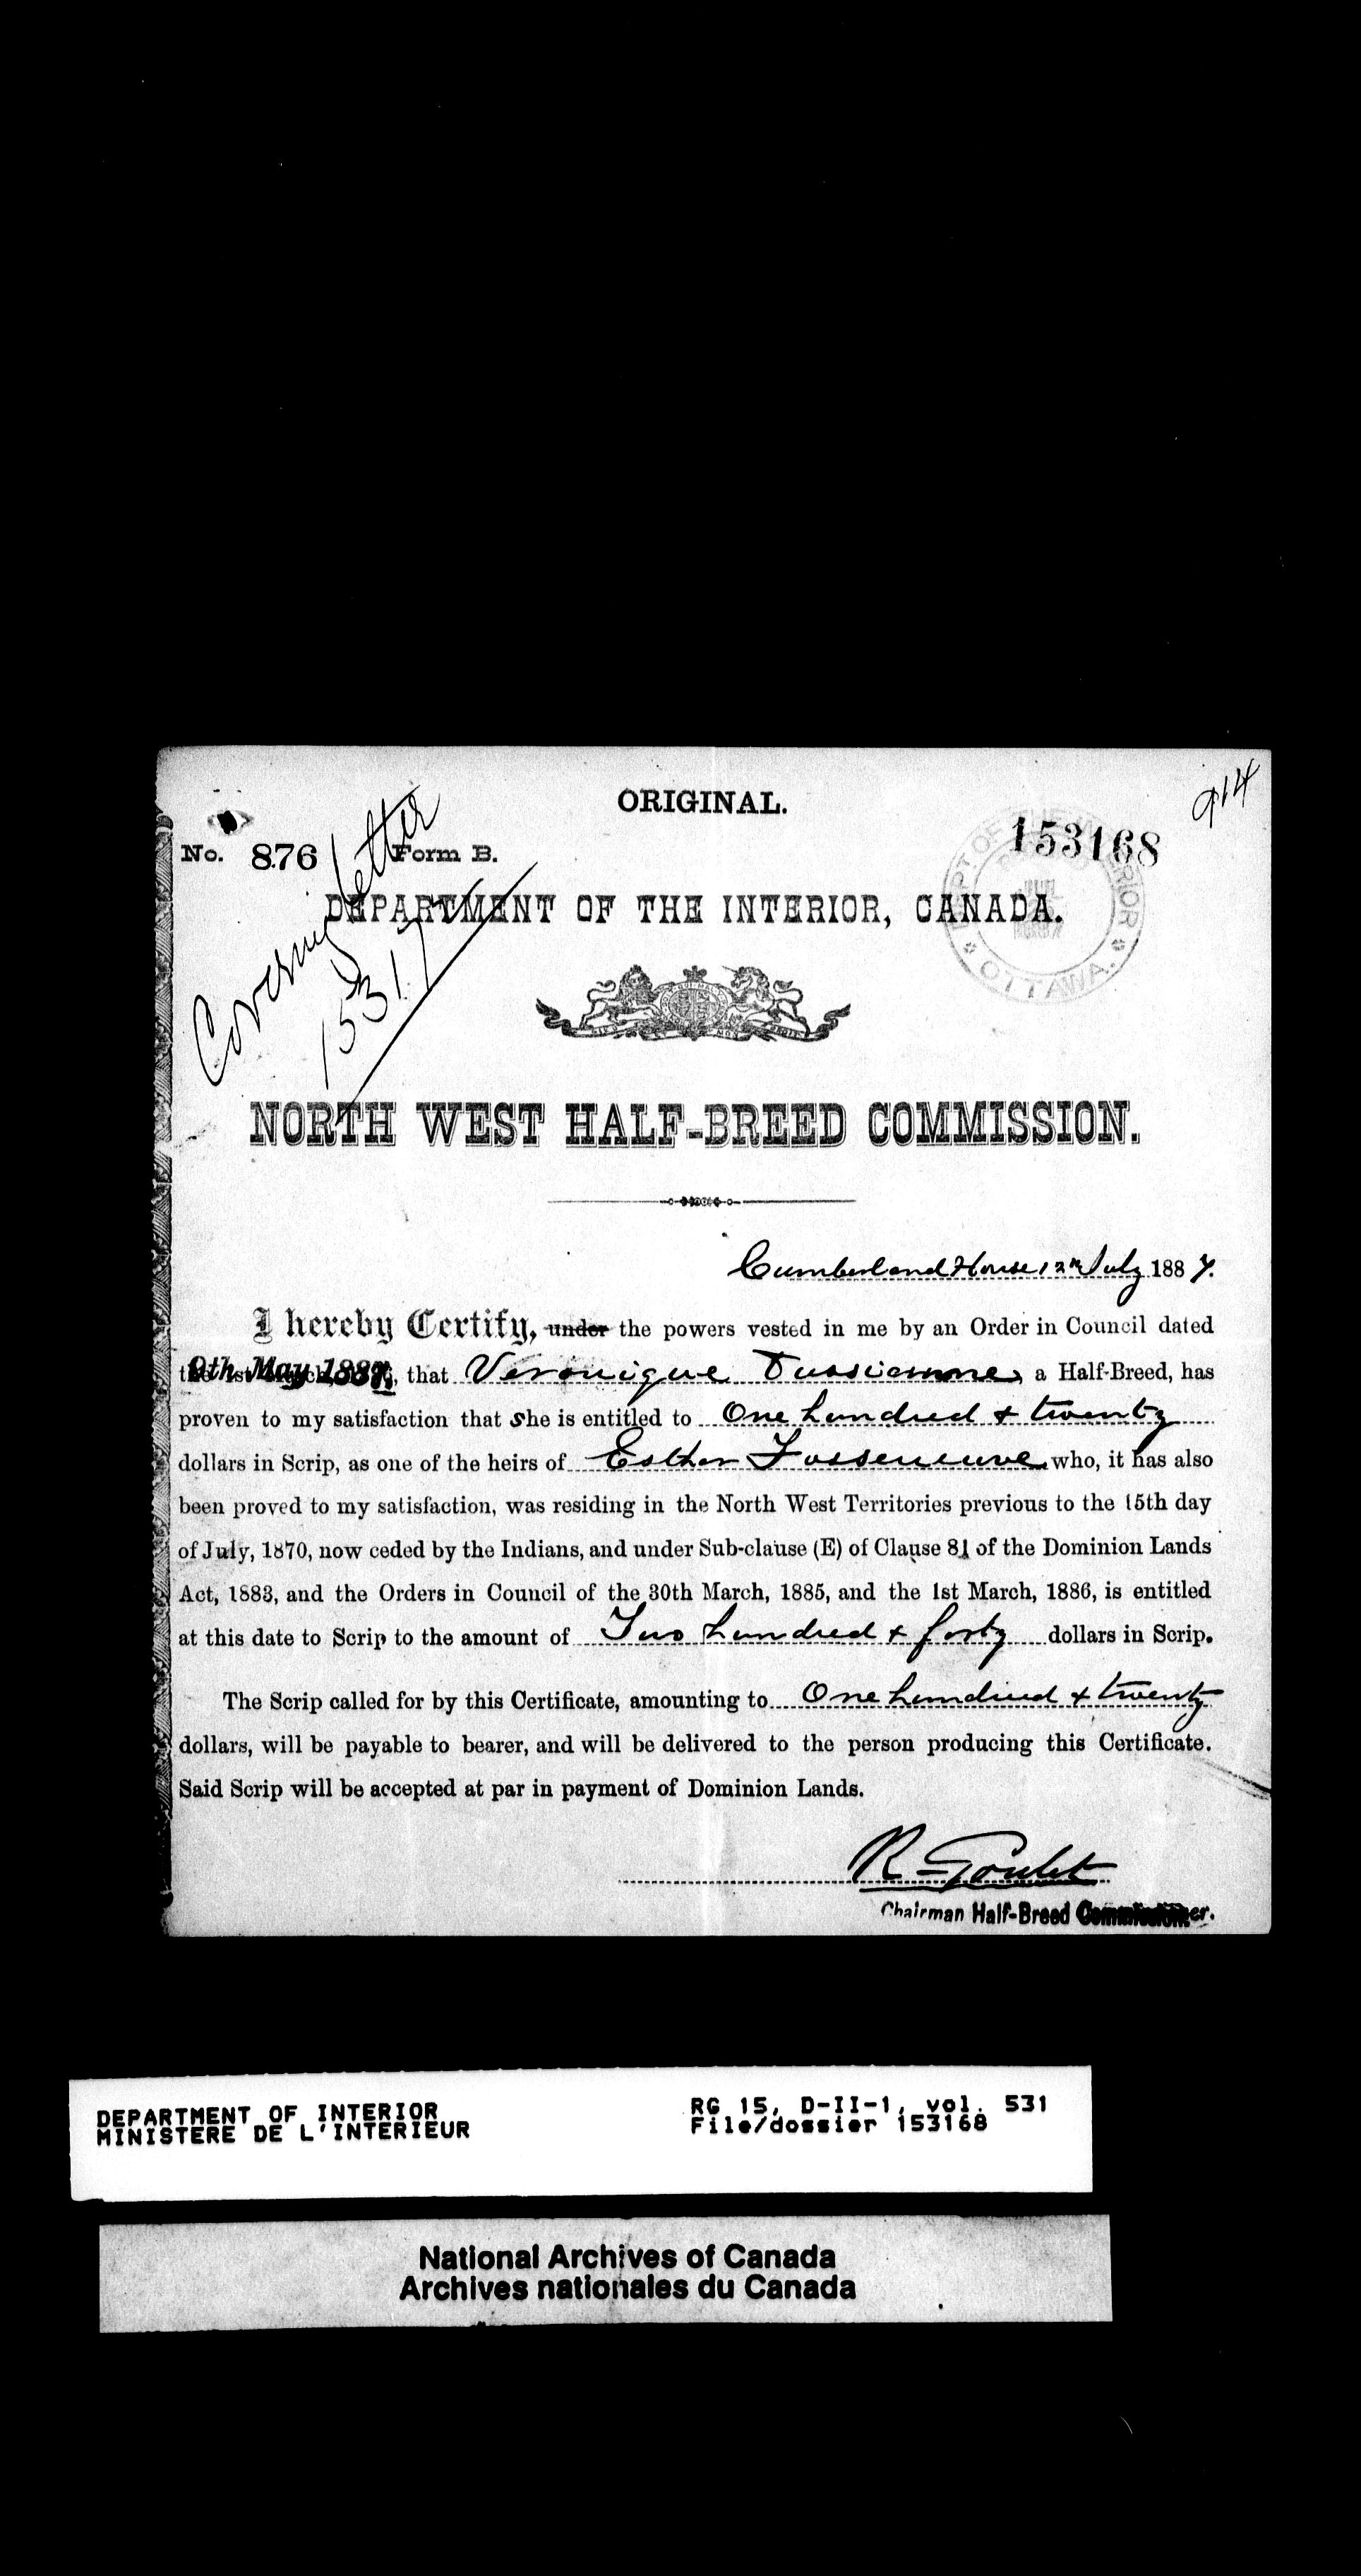 ORIGINAL.
914
No. 876 Form B.
153168
Covering letter
15317
DEPT OF THE INTERIOR
OTTAWA.
DEPARTMENT OF THE INTERIOR, CANADA.
NORTH WEST HALF-BREED COMMISSION.
Cumberland House 12th July 1887.
I hereby Certify, under the powers vested in me by an Order in Council dated
9th May 1887, that Veronique Dussiamme, a Half-Breed, has
proven to my satisfaction that She is entitled to One hundred & twenty
dollars in Scrip, as one of the heirs of Esther Fosseneuve who, it has also
been proved to my satisfaction, was residing in the North West Territories previous to the 15th day
of July, 1870, now ceded by the Indians, and under Sub-clause (E) of Clause 81 of the Dominion Lands
Act, 1883, and the Orders in Council of the 30th March, 1885, and the 1st March, 1886, is entitled
at this date to Scrip to the amount of Two hundred & forty dollars in Scrip.
The Scrip called for by this Certificate, amounting to One hundred & twenty
dollars, will be payable to bearer, and will be delivered to the person producing this Certificate.
Said Scrip will be accepted at par in payment of Dominion Lands.
R Goulet
Chairman Half-Breed Commission
DEPARTMENT OF INTERIOR
MINISTERE DE L'INTERIEUR
RG 15, D-II-1, vol. 531
File/dossier 153168
National Archives of Canada
Archives nationales du Canada